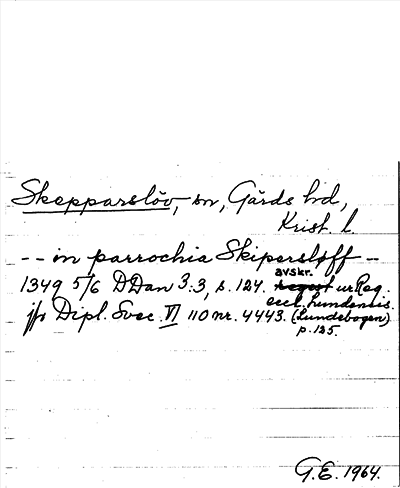 Skepparslöv, sn, Gärds hd,
Krist. l.
-- in parrochia Skipersløff --
1349 5/6 DDan 3:3, s. 124. avskr. ur Reg.
eccl. Lundensis
jfr Dipl. Svec. VI 110 nr. 4443. (Lundebogen)
p. 135.
G.E. 1964.